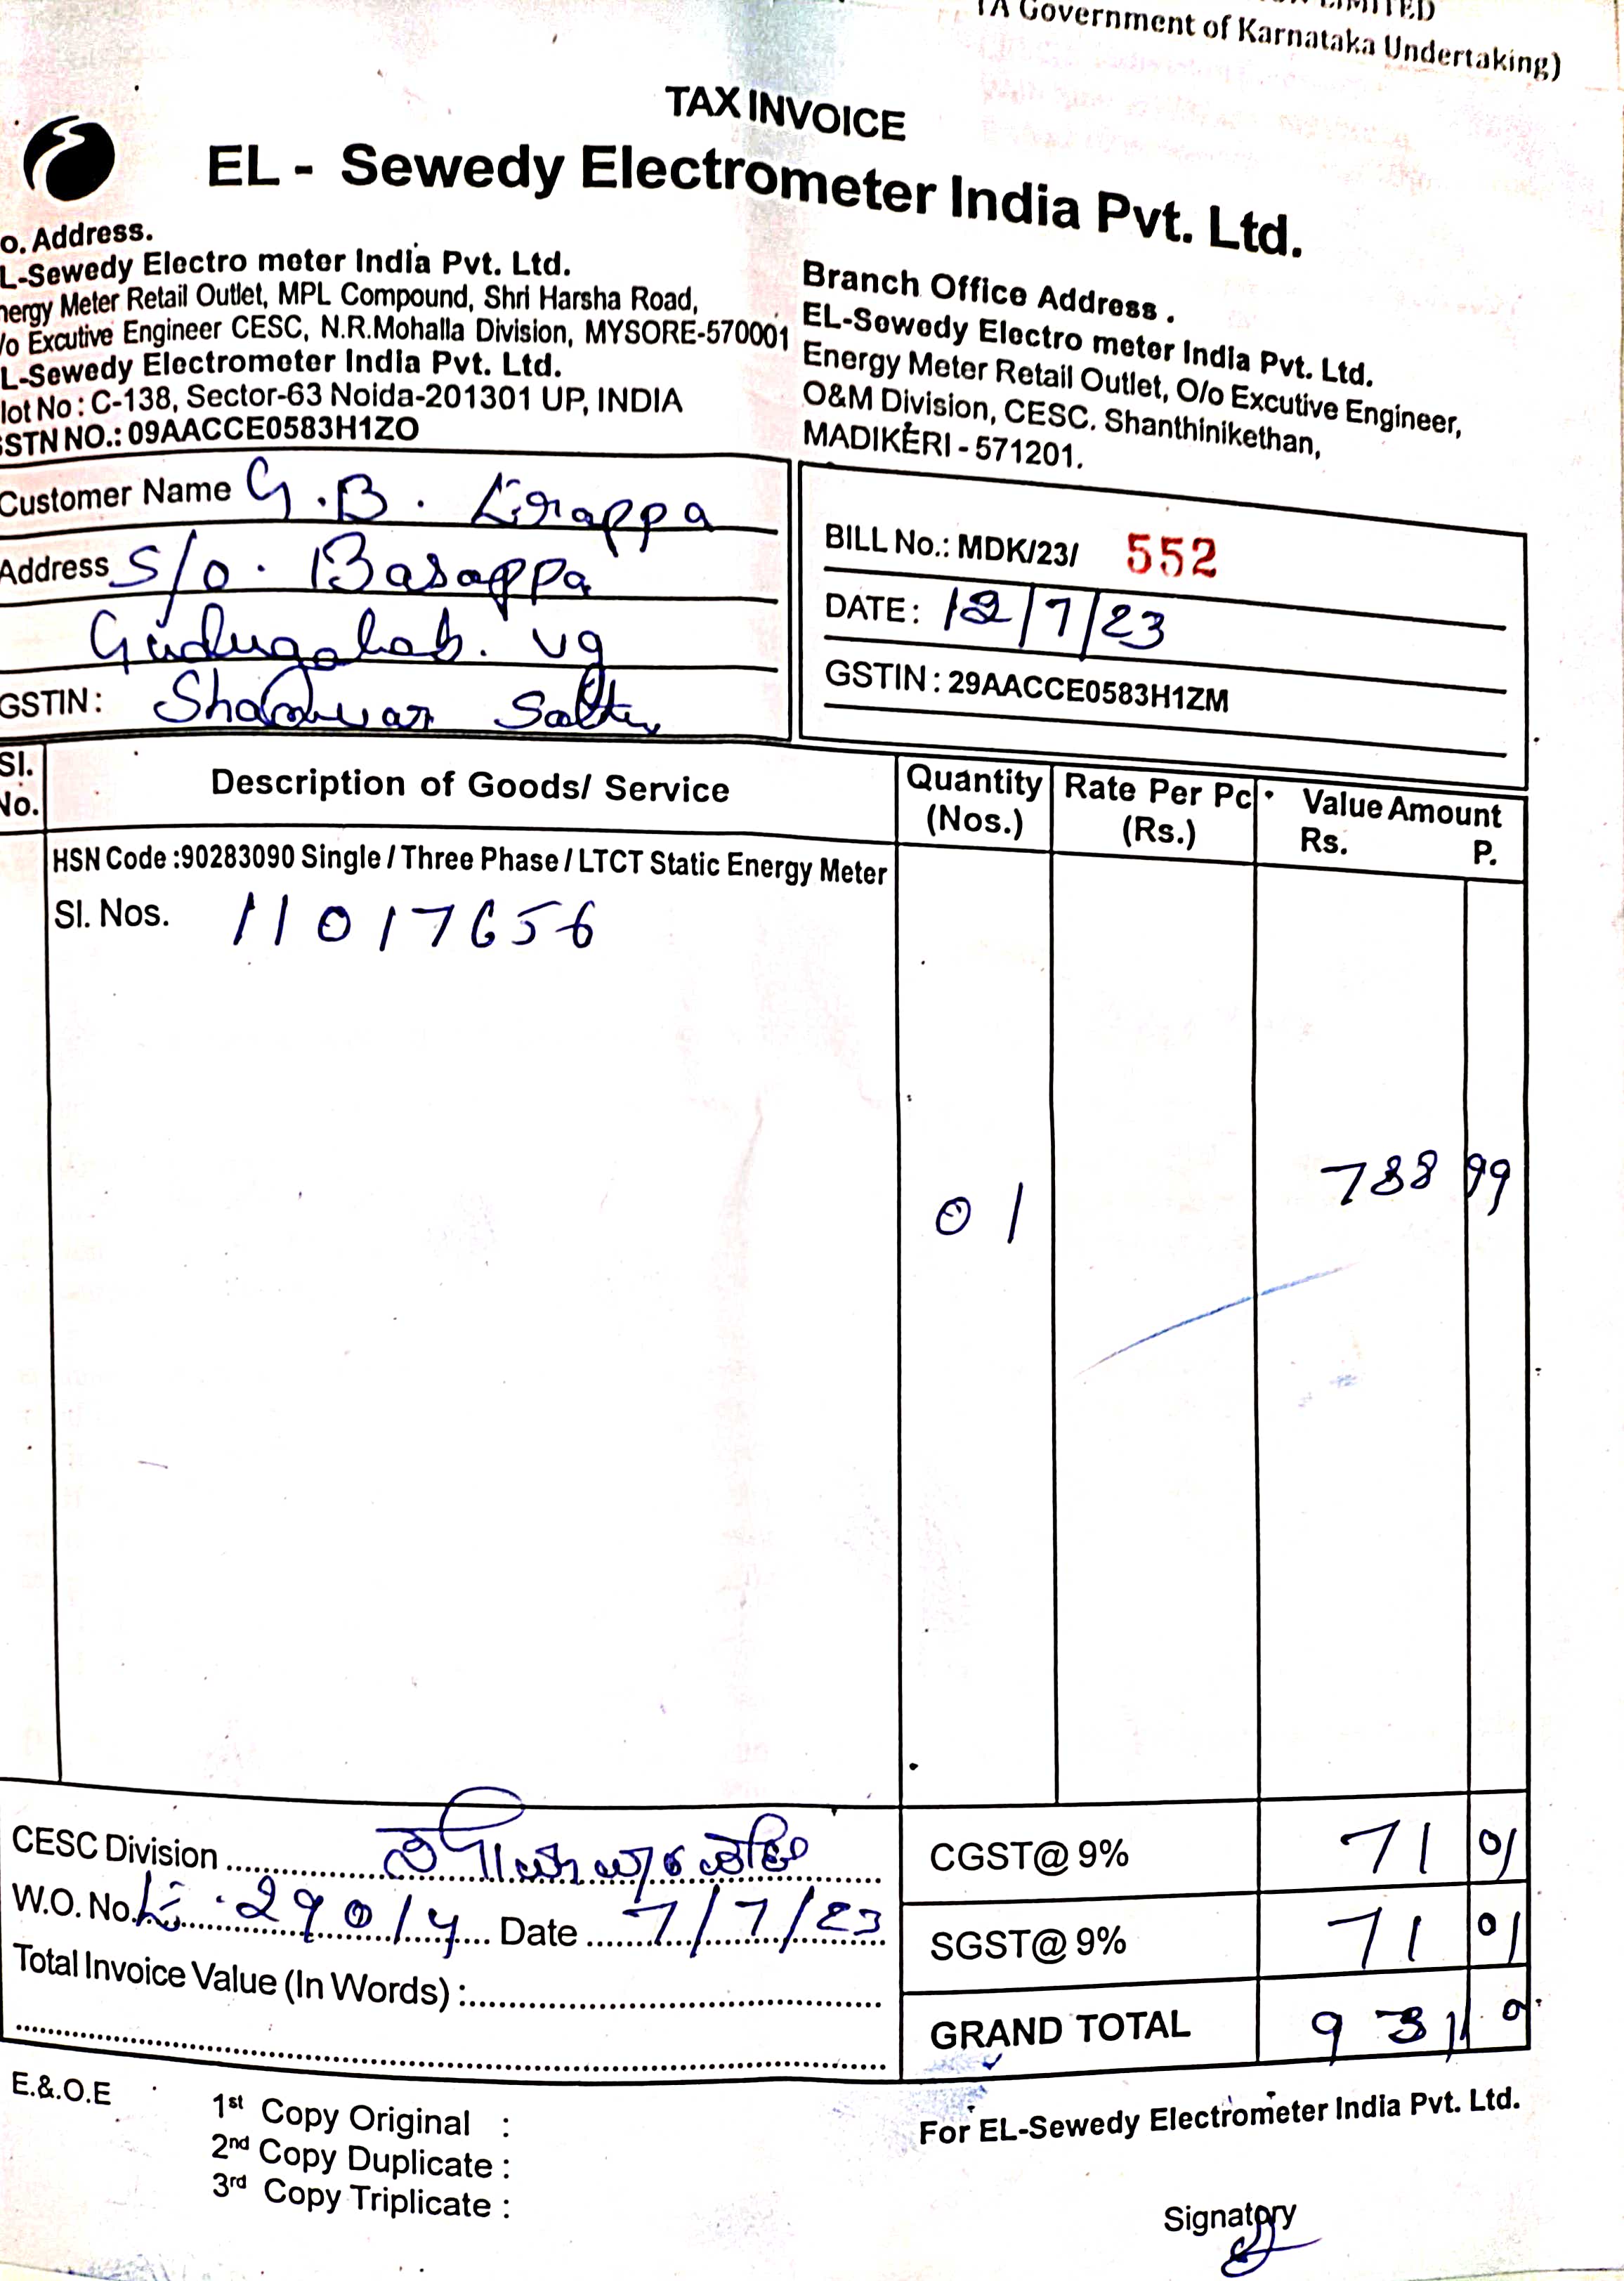 LIMITED
(A Government of Karnataka Undertaking)
TAX INVOICE
EL - Sewedy Electrometer India Pvt. Ltd.
o. Address.
L-Sewedy Electro meter India Pvt. Ltd.
nergy Meter Retail Outlet, MPL Compound, Shri Harsha Road,
/o Excutive Engineer CESC, N.R.Mohalla Division, MYSORE-570001
L-Sewedy Electrometer India Pvt. Ltd.
lot No : C-138, Sector-63 Noida-201301 UP, INDIA
STN NO.: 09AACCE0583H1ZO
Branch Office Address .
EL-Sewedy Electro meter India Pvt. Ltd.
Energy Meter Retail Outlet, O/o Excutive Engineer,
O&M Division, CESC. Shanthinikethan,
MADIKERI - 571201.
Customer Name G.B.
Address S/o. Basappa
vg
GSTIN :
BILL No.: MDK/23/ 552
DATE : 12/7/23
GSTIN : 29AACCE0583H1ZM
Sl. No. Description of Goods/ Service Quantity (Nos.) Rate Per Pc (Rs.) Value Amount Rs. P.
HSN Code :90283090 Single / Three Phase / LTCT Static Energy Meter
Sl. Nos. 11017656
01 788 99
CESC Division
W.O. No. 290/4 Date 7/7/23
Total Invoice Value (In Words) :
CGST@ 9% 71 01
SGST@ 9% 71 01
GRAND TOTAL 931
E.&.O.E
1st Copy Original :
2nd Copy Duplicate :
3rd Copy Triplicate :
For EL-Sewedy Electrometer India Pvt. Ltd.
Signatory